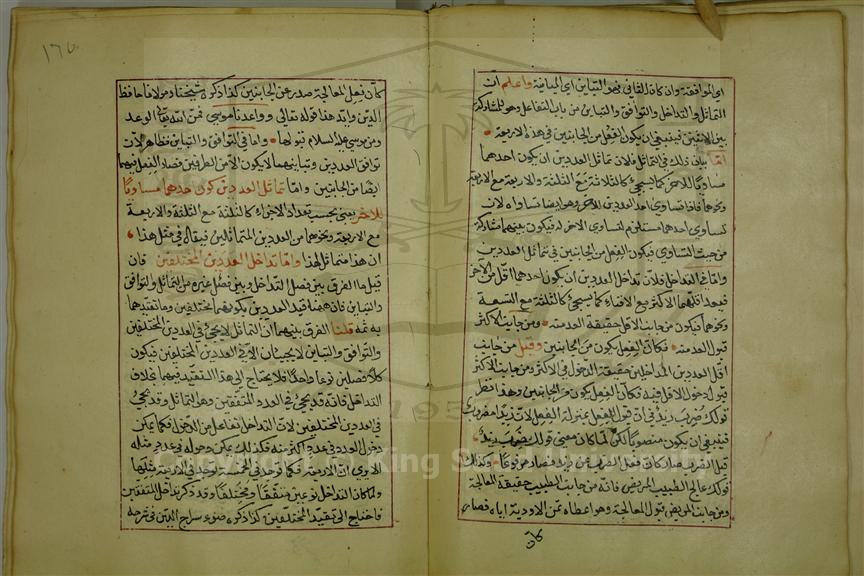 اي الموافقة وان كان الثاني فهو التباين اي المباينة واعلم أن
التماثل والتداخل والتوافق والتباين من باب التفاعل وهو لمشاركة
بين الاثنين فينبغي ان يكون الفعل من الجانبين في هذه الاربعة
امّا بيان ذلك في التماثل فلان تماثل العددين ان يكون احدهما
مساويًا للاخر كما يجيئ كالثلاثة مع الثلثة والاربعة مع الاربعة
ونحوها فاذا تساوى احد العددين للاخر وهو ايضا تساواه لان
تساوي احدهما مستلزم لتساوي الاخر له فيكون بينهما مشاركة
من حيث التساوي فيكون الفعل من الجانبين في تماثل العددين
وامّا في التداخل فلان تداخل العددين ان يكون احدهما اقل من الاخر
فيعد اقلهما الاكثر مع الافناء كما سيجئ كالثلثة مع التسعة
ونحوها فيكون من جانب الاقل حقيقة العد منه ومن جانب الاكثر
قبول العد منه فكان الفعل يكون من الجانبين وقيل من جانب
اقل العددين المتداخلين حقيقة الدخول في الاكثر ومن جانب الاكثر
قبول دخول الاقل فيه فكان الفعل يكون من الجانبين وهذا نظير
قولك ضُرِبَ زيدٌ في ان قبول الفعل بمنزلة الفعل لان زيدا مضروب
فينبغي ان يكون منصوبا لكن لما كان معنى قولك ضُرب زيدٌ
قبل الضرب صار كان فعل الضرب من زيد فصار مرفوعا وكذلك
قولك عالج الطبيب المريض فانه من جانب الطبيب حقيقة المعالجة
ومن جانب المريض قبول المعالجة وهو اعطاه ثمن الادوية اياه فصار
كان
١٦٧
كان فعل المعالجة صدر عن الجانبين كذا ذكره شيخنا ومولانا حافظ
الدين وايد هذا قوله تعالى وواعدنا موسى فمن الله تعالى الوعد
ومن موسى عليه السلام قبولها واما في التوافق والتباين فظاهر لان
توافق العددين وتباينهما لا يكون الا من الطرفين فصار الفعل فيهما
ايضا من الجانبين وامّا تماثل العددين كون احدهما مساويًا
للاخر يعني بحسب تعداد الاجزاء كالثلثة مع الثلثة والاربعة
مع الاربعة ونحوهما من العددين المتماثلين فيقال في مثل هذا
ان هذا متماثل لهذا وامّا تداخل العددين المختلفين فان
قيل ما الفرق بين فصل التداخل وبين فصل غيره من التماثل والتوافق
والتباين فان ههنا قيد العددين بكونهما مختلفين وما تقيدهما
به ثمه قلنا الفرق بينهما ان التماثل لا يجيئ في العددين المختلفين
والتوافق والتباين لا يجيئان الا في العددين المختلفين فيكون
كلا فصلين نوعا واحدًا فلا يحتاج الى هذا التقييد فيهما بخلاف
التداخل فانه قد يجئ في العدد المتفقين وهما التماثل وقد يجئ
في العددين المختلفين لان التداخل تفاعل من الدخول فكما يمكن
دخول العدد في عدد اكثر منه فكذلك يمكن دخوله في عدد مثله
الا يرى انّ الاربعة كما توجد في الخمسة توجد في الاربعة مثلها
ولما كان التداخل نوعين متفقًا ومختلفًا وقد ذكر تداخل المتفقين
فاحتاج الى تقييد المختلفين كذا ذكره ضوء سراج الدين في شرحه